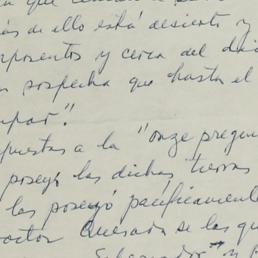 que
ás de ello está desierto y
posentos y cerca del
sospecha que hasta el
par".
puestas a la "onze pregun
poseyó las dichas tierras
las poseyó pacíficamente
octor Quesada se las qu